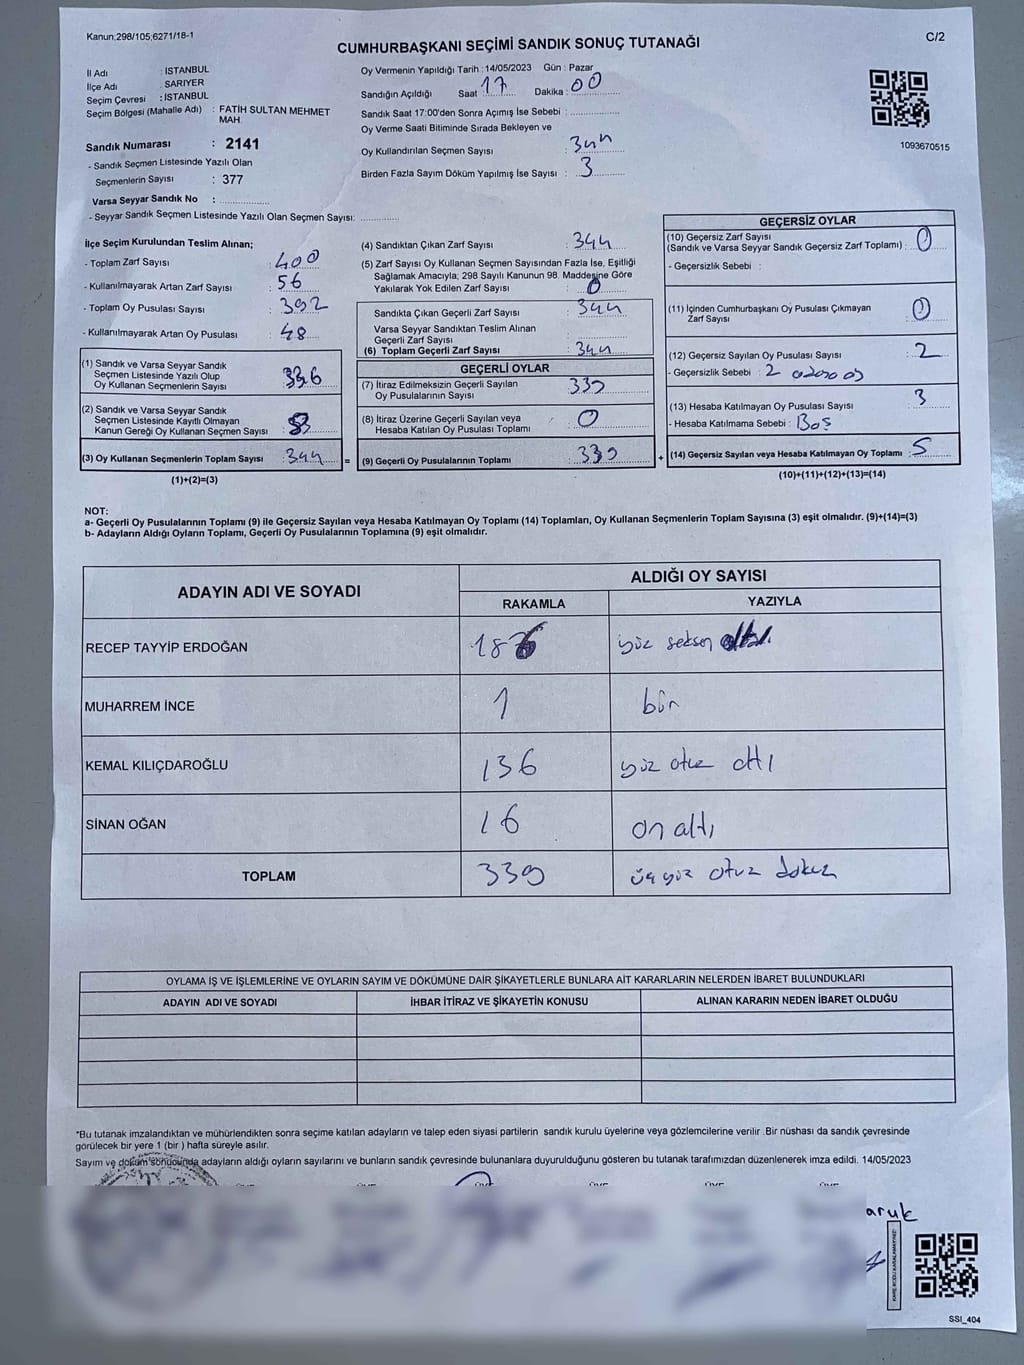 Kanun;298/105;6271/18-1
C/2
CUMHURBAŞKANI SEÇİMİ SANDIK SONUÇ TUTANAĞI
İl Adı : İSTANBUL
İlçe Adı : SARIYER
Seçim Çevresi : İSTANBUL
Seçim Bölgesi (Mahalle Adı) : FATİH SULTAN MEHMET
MAH.
Sandık Numarası : 2141
- Sandık Seçmen Listesinde Yazılı Olan
Seçmenlerin Sayısı : 377
Varsa Seyyar Sandık No :
- Seyyar Sandık Seçmen Listesinde Yazılı Olan Seçmen Sayısı:
Oy Vermenin Yapıldığı Tarih :14/05/2023 Gün : Pazar
Sandığın Açıldığı Saat : 17 Dakika : 00
Sandık Saat 17:00'den Sonra Açımış İse Sebebi :
Oy Verme Saati Bitiminde Sırada Bekleyen ve
Oy Kullandırılan Seçmen Sayısı : 344
Birden Fazla Sayım Döküm Yapılmış İse Sayısı : 3
1093670515
İlçe Seçim Kurulundan Teslim Alınan;
- Toplam Zarf Sayısı : 400
- Kullanılmayarak Artan Zarf Sayısı : 56
- Toplam Oy Pusulası Sayısı : 392
- Kullanılmayarak Artan Oy Pusulası : 48
(1) Sandık ve Varsa Seyyar Sandık
Seçmen Listesinde Yazılı Olup
Oy Kullanan Seçmenlerin Sayısı : 336
(2) Sandık ve Varsa Seyyar Sandık
Seçmen Listesinde Kayıtlı Olmayan
Kanun Gereği Oy Kullanan Seçmen Sayısı : 8
(3) Oy Kullanan Seçmenlerin Toplam Sayısı : 344 =
(1)+(2)=(3)
(4) Sandıktan Çıkan Zarf Sayısı : 344
(5) Zarf Sayısı Oy Kullanan Seçmen Sayısından Fazla İse, Eşitliği
Sağlamak Amacıyla; 298 Sayılı Kanunun 98. Maddesine Göre
Yakılarak Yok Edilen Zarf Sayısı : 0
Sandıkta Çıkan Geçerli Zarf Sayısı : 344
Varsa Seyyar Sandıktan Teslim Alınan
Geçerli Zarf Sayısı :
(6) Toplam Geçerli Zarf Sayısı : 344
GEÇERLİ OYLAR
(7) İtiraz Edilmeksizin Geçerli Sayılan
Oy Pusulalarının Sayısı : 339
(8) İtiraz Üzerine Geçerli Sayılan veya
Hesaba Katılan Oy Pusulası Toplamı : 0
(9) Geçerli Oy Pusulalarının Toplamı : 339 +
GEÇERSİZ OYLAR
(10) Geçersiz Zarf Sayısı
(Sandık ve Varsa Seyyar Sandık Geçersiz Zarf Toplamı) : 0
- Geçersizlik Sebebi :
(11) İçinden Cumhurbaşkanı Oy Pusulası Çıkmayan
Zarf Sayısı : 0
(12) Geçersiz Sayılan Oy Pusulası Sayısı : 2
- Geçersizlik Sebebi : 2
(13) Hesaba Katılmayan Oy Pusulası Sayısı : 3
- Hesaba Katılmama Sebebi : Boş
(14) Geçersiz Sayılan veya Hesaba Katılmayan Oy Toplamı : 5
(10)+(11)+(12)+(13)=(14)
NOT:
a- Geçerli Oy Pusulalarının Toplamı (9) ile Geçersiz Sayılan veya Hesaba Katılmayan Oy Toplamı (14) Toplamları, Oy Kullanan Seçmenlerin Toplam Sayısına (3) eşit olmalıdır. (9)+(14)=(3)
b- Adayların Aldığı Oyların Toplamı, Geçerli Oy Pusulalarının Toplamına (9) eşit olmalıdır.
ADAYIN ADI VE SOYADI
ALDIĞI OY SAYISI
RAKAMLA YAZIYLA
RECEP TAYYİP ERDOĞAN 186 yüz seksen altı
MUHARREM İNCE 1 bir
KEMAL KILIÇDAROĞLU 136 yüz otuz altı
SİNAN OĞAN 16 on altı
TOPLAM 339 üçyüz otuz dokuz
OYLAMA İŞ VE İŞLEMLERİNE VE OYLARIN SAYIM VE DÖKÜMÜNE DAİR ŞİKAYETLERLE BUNLARA AİT KARARLARIN NELERDEN İBARET BULUNDUKLARI
ADAYIN ADI VE SOYADI İHBAR İTİRAZ VE ŞİKAYETİN KONUSU ALINAN KARARIN NEDEN İBARET OLDUĞU
*Bu tutanak imzalandıktan ve mühürlendikten sonra seçime katılan adayların ve talep eden siyasi partilerin sandık kurulu üyelerine veya gözlemcilerine verilir .Bir nüshası da sandık çevresinde
görülecek bir yere 1 (bir ) hafta süreyle asılır.
Sayım ve döküm sonucunda adayların aldığı oyların sayılarını ve bunların sandık çevresinde bulunanlara duyurulduğunu gösteren bu tutanak tarafımızdan düzenlenerek imza edildi. 14/05/2023
aruk
KARE KODU KARALAMAYINIZ!
SSI_404